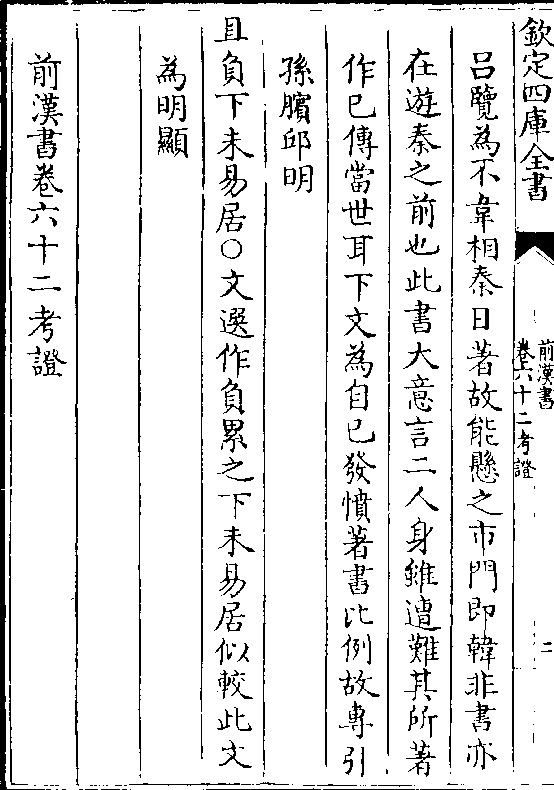 欽定四庫全書
前漢書
卷六十二考證
二
呂覽為不韋相秦日著故能懸之市門即韓非書亦
在遊秦之前也此書大意言二人身雖遭難其所著
作已傳當世耳下文為自已發憤著書比例故專引
孫臏邱明
且負下未易居○文選作負累之下未易居似較此文
為明顯
前漢書卷六十二考證